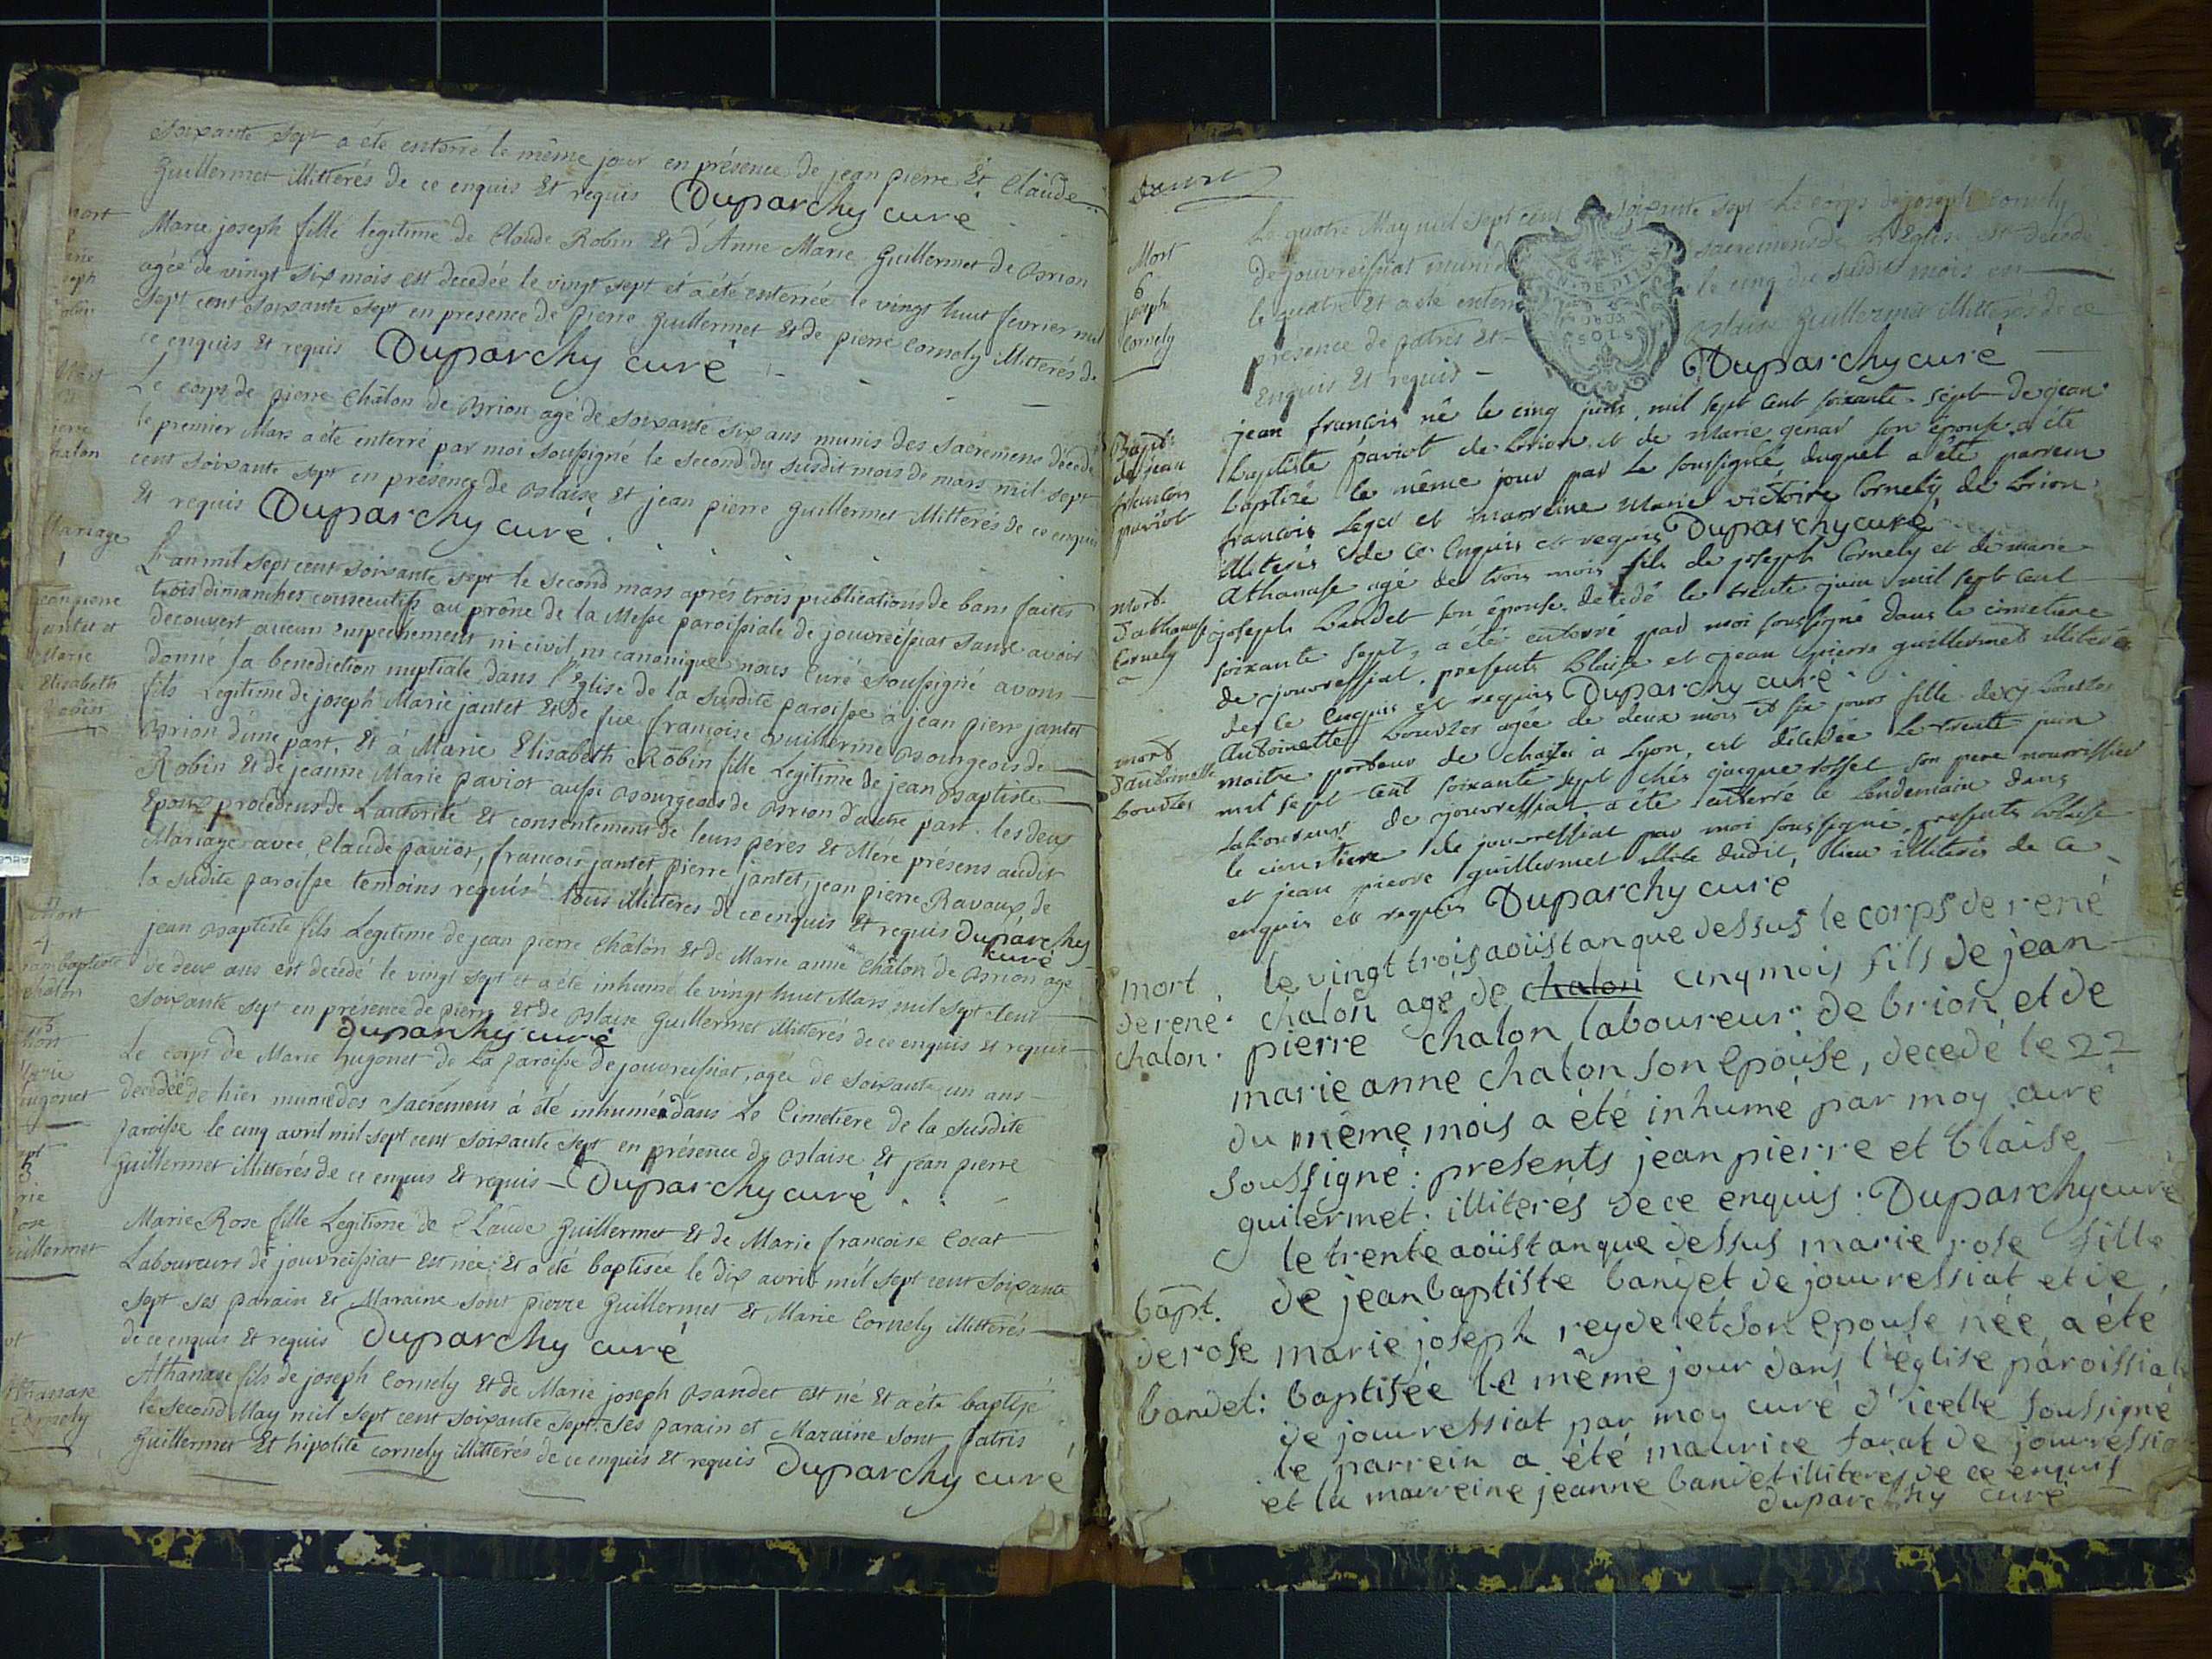 Soixante Sept a été enterré le même jour en présence de jean pierre Et Claude
Guillermet illitterés de ce enquis Et requis Duparchy curé
Marie joseph fille legitime de Claude Robin Et d'Anne Marie Guillermet de Brion
agée de vingt six mois est decedée le vingt sept et a été enterrée le vingt huit fevrier mil
Sept cent Soixante Sept en presence de pierre Guillermet Et de pierre Cornely illitterés de
ce enquis Et requis Duparchy curé
Mort
pierre
chalon
Le corps de pierre Châlon de Brion agé de Soixante Six ans munis des Sacremens decedé
le premier Mars a été enterré par moi Soussigné le Second du susdit mois de mars mil Sept
cent Soixante Sept en présence de Blaise Et jean pierre Guillermet illitterés de ce enquis
Et requis Duparchy curé
Mariage
1
jean pierre
jantet et
Marie
Elisabeth
Robin
L'an mil Sept cent Soixante Sept le Second mars aprés trois publications de bans faites
trois dimanches consecutifs au prône de la Messe paroissiale de jouvreissiat Sans avoir
decouvert aucun empechement ni civil ni canonique nous Curé Soussigné avons
donné la benediction nuptiale dans l'Eglise de la Susdite paroisse à jean pierre jantet
fils Legitime de joseph Marie jantet Et de fue françoise vuillerme Bourgeois de
Brion d'une part, Et à Marie Elisabeth Robin fille Legitime de jean Baptiste
Robin Et de jeanne Marie paviot aussi Bourgeois de Brion d'autre part. les deux
Epoux procedens de L'autorité Et consentement de leurs peres Et Mere présens audit
Mariage avec Claude paviot, françois jantet, pierre jantet, jean pierre Ravaux de
la Sudite paroisse temoins requis tous illitterés de ce enquis Et requis Duparchy
curé
Mort
4
jean baptiste
chalon
jean Baptiste fils Legitime de jean pierre Châlon Et de Marie anne Châlon de Brion agé
de deux ans est decedé le vingt Sept et a été inhumé le vingt huit Mars mil Sept Cent
Soixante Sept en présence de pierre Et de Blaise Guillermet illitterés de ce enquis Et requis
Duparchy curé
5
Mort
Marie
hugonet
Le corps de Marie hugonet de La paroisse de jouvreissiat, agée de Soixante un ans
decedée de hier munie des Sacremens à été inhumée dans Le Cimetiere de la Susdite
paroisse le cinq avril mil Sept cent Soixante Sept en présence de Blaise Et jean pierre
Guillermet illitterés de ce enquis Et requis Duparchy curé
Marie Rose fille Legitime de Claude Guillermet Et de Marie françoise Cocat
Laboureurs de jouvreissiat Est née Et a été baptisée le dix avril mil Sept cent Soixante
Sept Ses parain Et Maraine Sont pierre Guillermet Et Marie Cornely illitterés
de ce enquis Et requis Duparchy curé
Athanase
Cornely
Athanase fils de joseph Cornely Et de Marie joseph Bandet est né Et a été baptisé
le Second May mil Sept cent Soixante Sept. Ses parain et Maraine Sont patris
Guillermet Et hipolite cornely illitterés de ce enquis Et requis Duparchy curé
Mort
6
joseph
Cornely
Le quatre May mil Sept cent Soixante Sept Le corps de joseph Cornely
de jouvreissiat muni Sacremens de L'Eglise est decedé
le quatre Et a été enterré le cinq du Susdit mois en
présence de patris Et Blaise Guillermet illitterés de ce
Enquis Et requis Duparchy curé
Bapt.
de jean
françois
paviot
jean françois né le cinq juin mil sept cent soixante sept de jean
baptiste paviot de brion et de marie genar son épouse a été
baptisé le même jour par le soussigné, duquel a été parrein
françois Leger et marreine Marie victoire Cornely de brion
illiterés de ce Enquis et requis Duparchy curé
mort
d'athanase
Cornely
Athanase agé de trois mois fils de joseph Cornely et de marie
joseph bandet son épouse decedé le trente juin mil sept cent
soixante sept, a été enterré par moi soussigné dans le cimetiere
de jouvressiat. presents blaise et jean pierre guillermet illiterés
de ce Enquis et requis Duparchy curé
mort
d'antoinette
bouvles
Antoinette bouvles agée de deux mois et six jours fille de j. bouvles
maitre porteur de chaise a Lyon, est décédée le trente juin
mil sept cent soixante sept chés jacque son pere nourrissier
Laboureur de jouvressiat, a été enterré le lendemain dans
le cimetiere de jouvressiat par moi soussigné, presents blaise
et jean pierre guillermet dudit lieu illiterés de ce
enquis et requis Duparchy curé
mort
de rené
chalon
le vingt trois aoüst an que dessus le corps de rené
chalon agé de chalon cinq mois fils de jean
pierre chalon laboureur de brion et de
marie anne chalon son epouse, decedé le 22
du même mois a été inhumé par moy curé
soussigné: presents jean pierre et blaise
guilermet. illiterés de ce enquis. Duparchy curé
bapt.
de rose
bandet:
le trente aoüst an que dessus marie rose fille
de jean baptiste bandet de jouvressiat et de
marie joseph reydelet son epouse née a été
baptisée le même jour dans l'église paroissiale
de jouvressiat par moy curé d'icelle soussigné
le parrein a été maurice farat de jouvressia
et la marreine jeanne bandet illiterés de ce enquis
duparchy curé